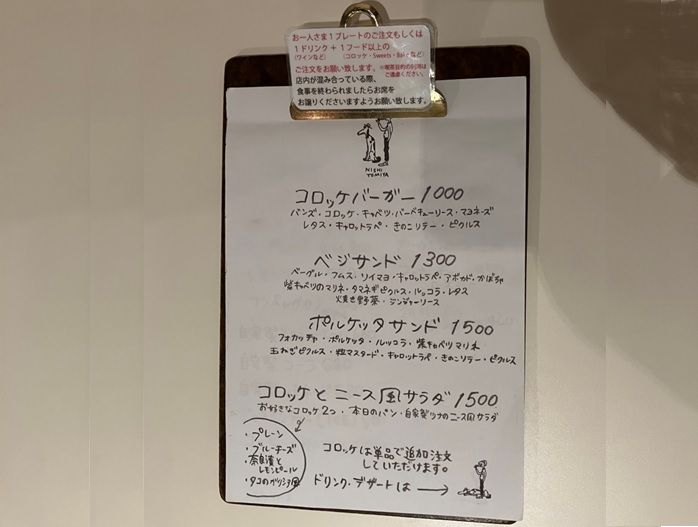 お一人さま1プレートのご注文もしくは
1ドリンク + 1フード以上の
(ワインなど) (コロッケ・Sweets・Bakeなど)
ご注文をお願い致します。 ※喫茶目的の利用は
ご遠慮ください。
店内が混み合っている際、
食事を終わられましたらお席を
お譲りくださいますようお願い致します。
NISHI
TOMIYA
コロッケバーガー 1000
バンズ・コロッケ・キャベツ・バーベキューソース・マヨネーズ
レタス・キャロットラペ・きのこソテー・ピクルス
ベジサンド 1300
ベーグル・フムス・ソイマヨ・キャロットラペ・アボカド・かぼちゃ
紫キャベツのマリネ・タマネギピクルス・ルッコラ・レタス
焼き野菜・ジンジャーソース
ポルケッタサンド 1500
フォカッチャ・ポルケッタ・ルッコラ・紫キャベツマリネ
玉ねぎピクルス・粒マスタード・キャロットラペ・きのこソテー・ピクルス
コロッケとニース風サラダ 1500
お好きなコロッケ2つ・本日のパン・自家製ツナのニース風サラダ
・プレーン
・ブルーチーズ
・奈良漬と
レモンピール
・タコのガリシア風
コロッケは単品で追加注文
していただけます。
ドリンク・デザートは →